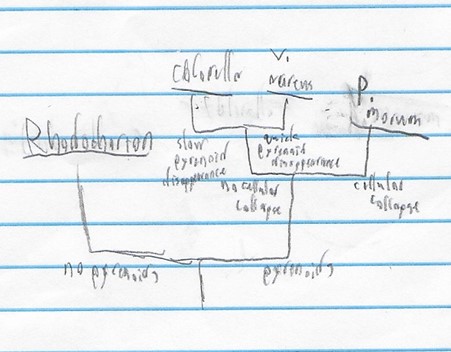 Chlorella
V.
aureus
P.
morum
Rhodochorton
slow
pyrenoid
disappearance
quick
pyrenoid
disappearance
no cellular
collapse
cellular
collapse
no pyrenoids
pyrenoids